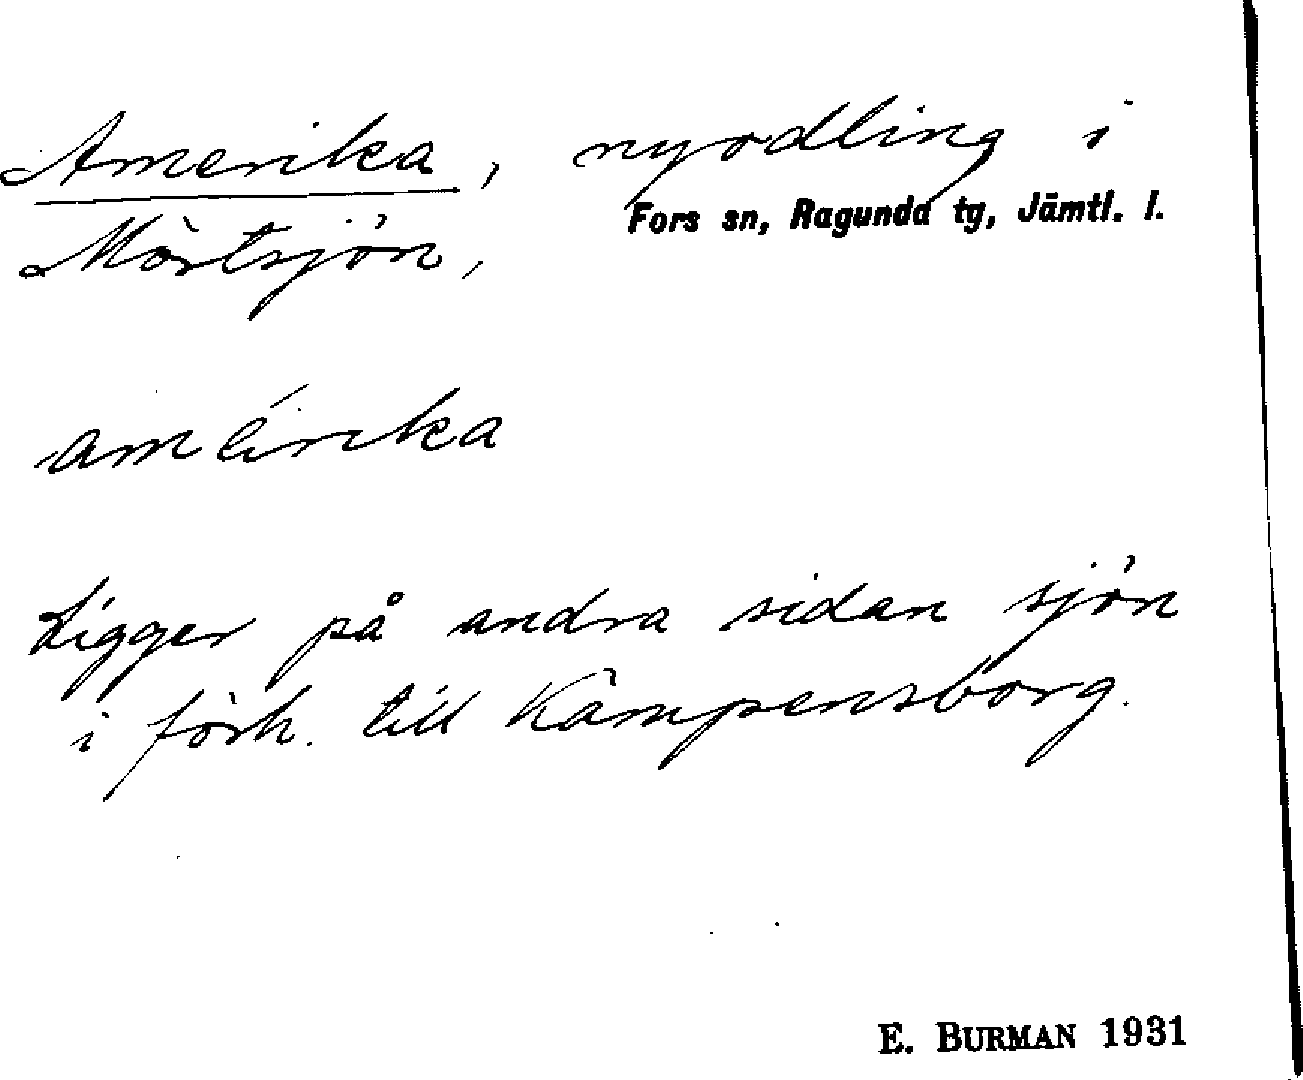 Amerika, nyodling i
Fors sn, Ragunda tg, Jämtl. l.
Mörtsjön,
amérika
Ligger på andra sidan sjön
i förh. till Kämpensborg.
E. BURMAN 1931